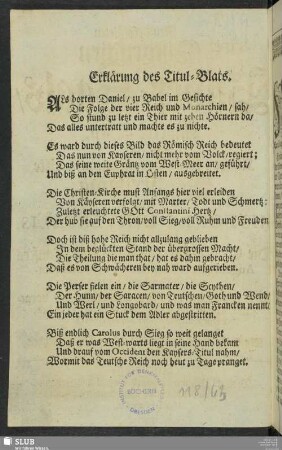 Erklärung des Titul-Blats.
Als dorten Daniel/ zu Babel im Gesichte
Die Folge der vier Reich und Monarchien/ sah/
So stund zu letzt ein Thier mit zehen Hörnern da/
Das alles untertratt und machte es zu nichte.
Es ward durch dieses Bild das Römisch Reich bedeutet
Das nun von Kaysern/ nicht mehr vom Volck/ regiert;
Das seine weite Gräntz vom West-Meer an/ geführt/
Und biß an den Euphrat in Osten/ ausgebreitet.
Die Christen-Kirche must Anfangs hier viel erleiden
Von Käysern verfolgt/ mit Marter/ Todt und Schmertz:
Zuletzt erleuchtete GOtt Constantini Hertz/
Der hub sie auf den Thron/ voll Sieg/ voll Ruhm und Freuden
Doch ist diß hohe Reich nicht allzulang geblieben
In dem beglückten Stand der überprossen Macht/
Die Theilung die man that/ hat es dahin gebracht/
Daß es von Schwächeren bey nah ward aufgerieben.
Die Perser fielen ein/ die Sarmater/ die Scythen/
Der Hunn/ der Saracen/ von Teutschen/ Goth und Wend/
Und Werl/ und Longobard/ und was man Francken nennt/
Ein jeder hat ein Stuck dem Adler abgestritten.
Biß endlich Carolus durch Sieg so weit gelanget
Daß er was West-warts liegt in seine Hand bekam
Und drauf vom Occident den Kaysers-Titul nahm/
Wormit das Teutsche Reich noch heut zu Tage pranget.
118/63
SLUB